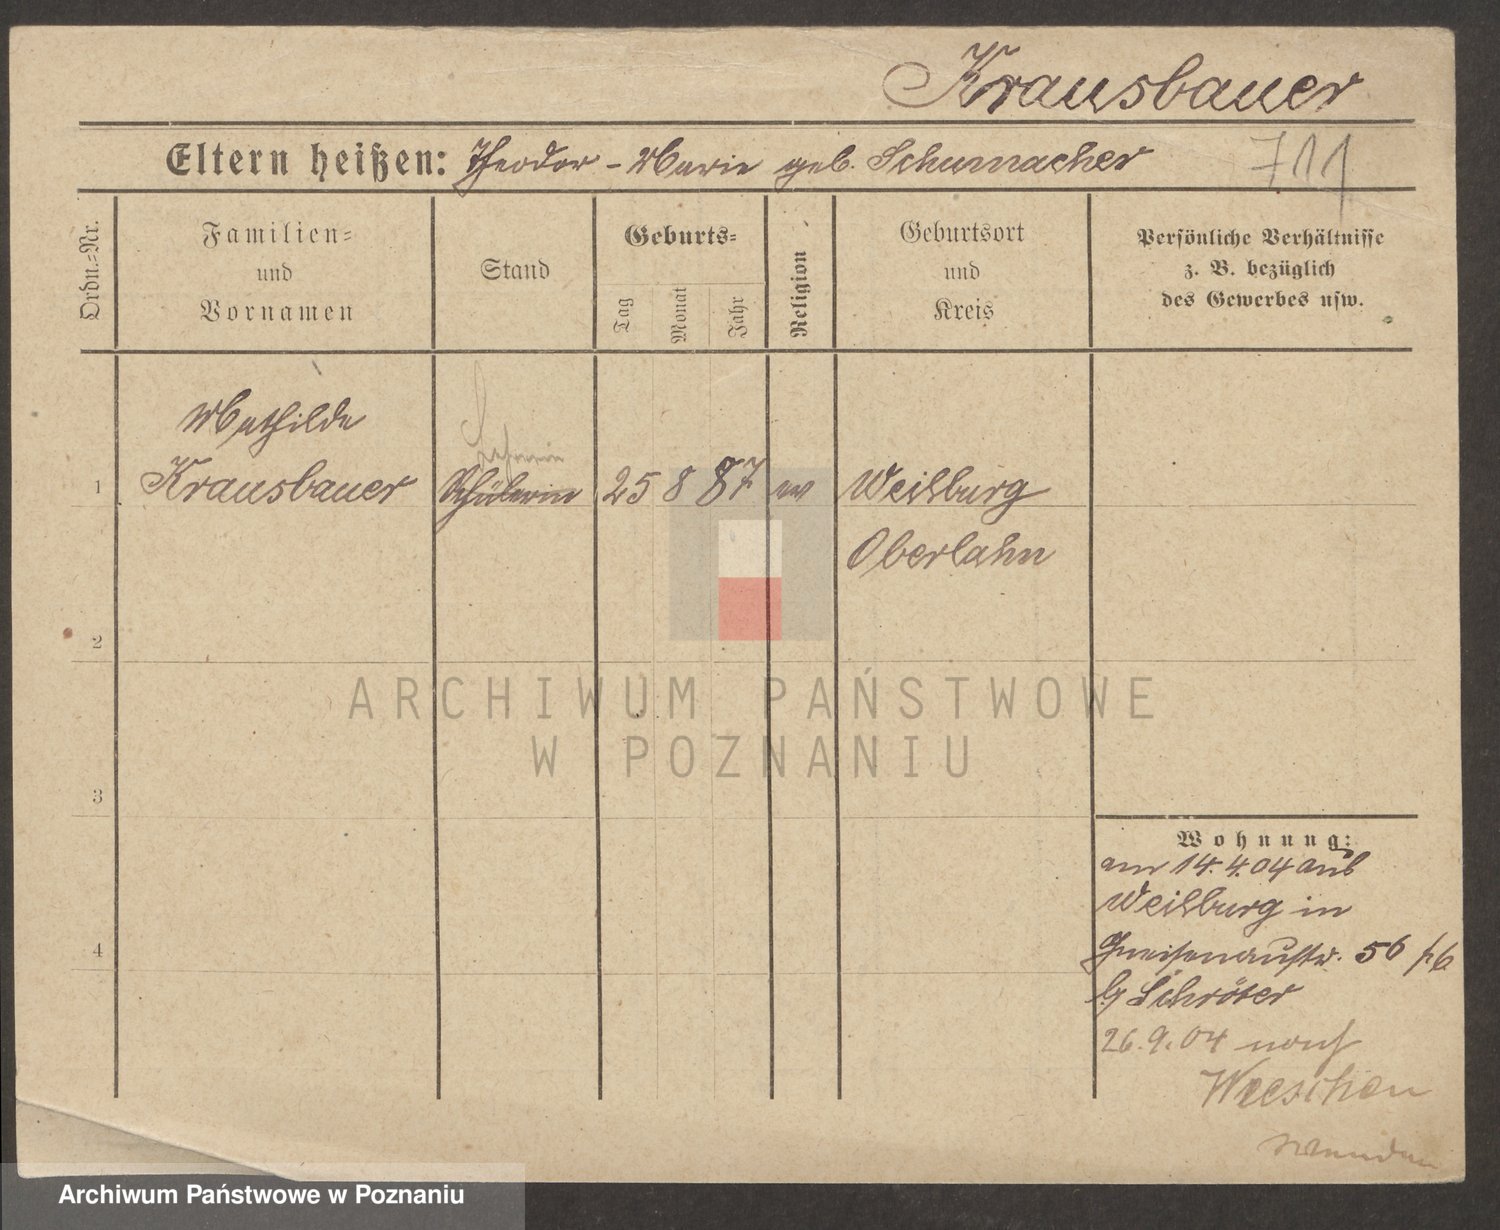 Krausbauer
Eltern heißen: Theodor - Marie geb. Schumacher 711
Ordn.-Nr.
Familien-
und
Vornamen
Stand
Geburts-
Tag
Monat
Jahr
Religion
Geburtsort
und
Kreis
Persönliche Verhältnisse
z. B. bezüglich
des Gewerbes usw.
Mathilde
Lehrerin
1 Krausbauer Schülerin 25 8 87 ev Weilburg
Oberlahn
2
3
4
Wohnung:
am 14.4.04 aus
Weilburg in
Gneisenaustr. 56
b/ Schröter
26.9.04 nach
Wreschen
wenden
ARCHIWUM PAŃSTWOWE
W POZNANIU
Archiwum Państwowe w Poznaniu